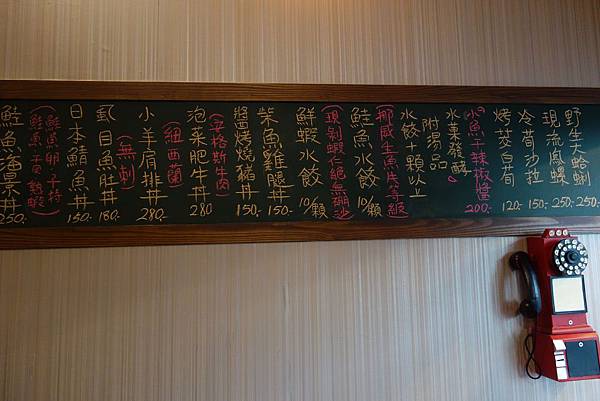 野生大蛤蜊 250.-
現流鳳螺 250.-
冷荀沙拉 150.-
烤茭白荀 120.-
小魚干辣椒醬 200.-
水果發酵
附湯品
水餃十顆以上
(挪威生魚片等級)
鮭魚水餃 10/顆
(現剝蝦仁絕無硼沙)
鮮蝦水餃 10/顆
柴魚雞腿丼 150.-
醬烤燒豬丼 150.-
(安格斯牛肉)
泡菜肥牛丼 280
(紐西蘭)
小羊肩排丼 280.-
(無刺)
虱目魚肚丼 180.-
日本鯖魚丼 150.-
(鮭魚卵 子持
鮭魚 干貝 熟蝦)
鮭魚海景丼 250.